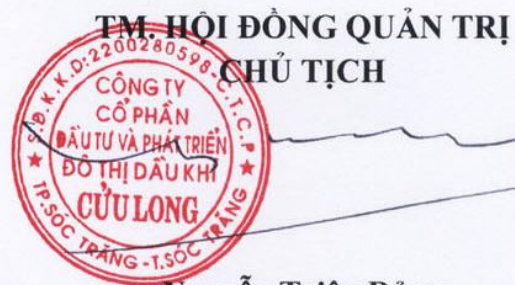 TM. HỘI ĐỒNG QUẢN TRỊ
CHỦ TỊCH
S.Đ.K.K.D:2200280598-C.T.C.P
CÔNG TY
CỔ PHẦN
ĐẦU TƯ VÀ PHÁT TRIỂN
ĐÔ THỊ DẦU KHÍ
CỬU LONG
TP.SÓC TRĂNG-T.SÓC TRĂNG